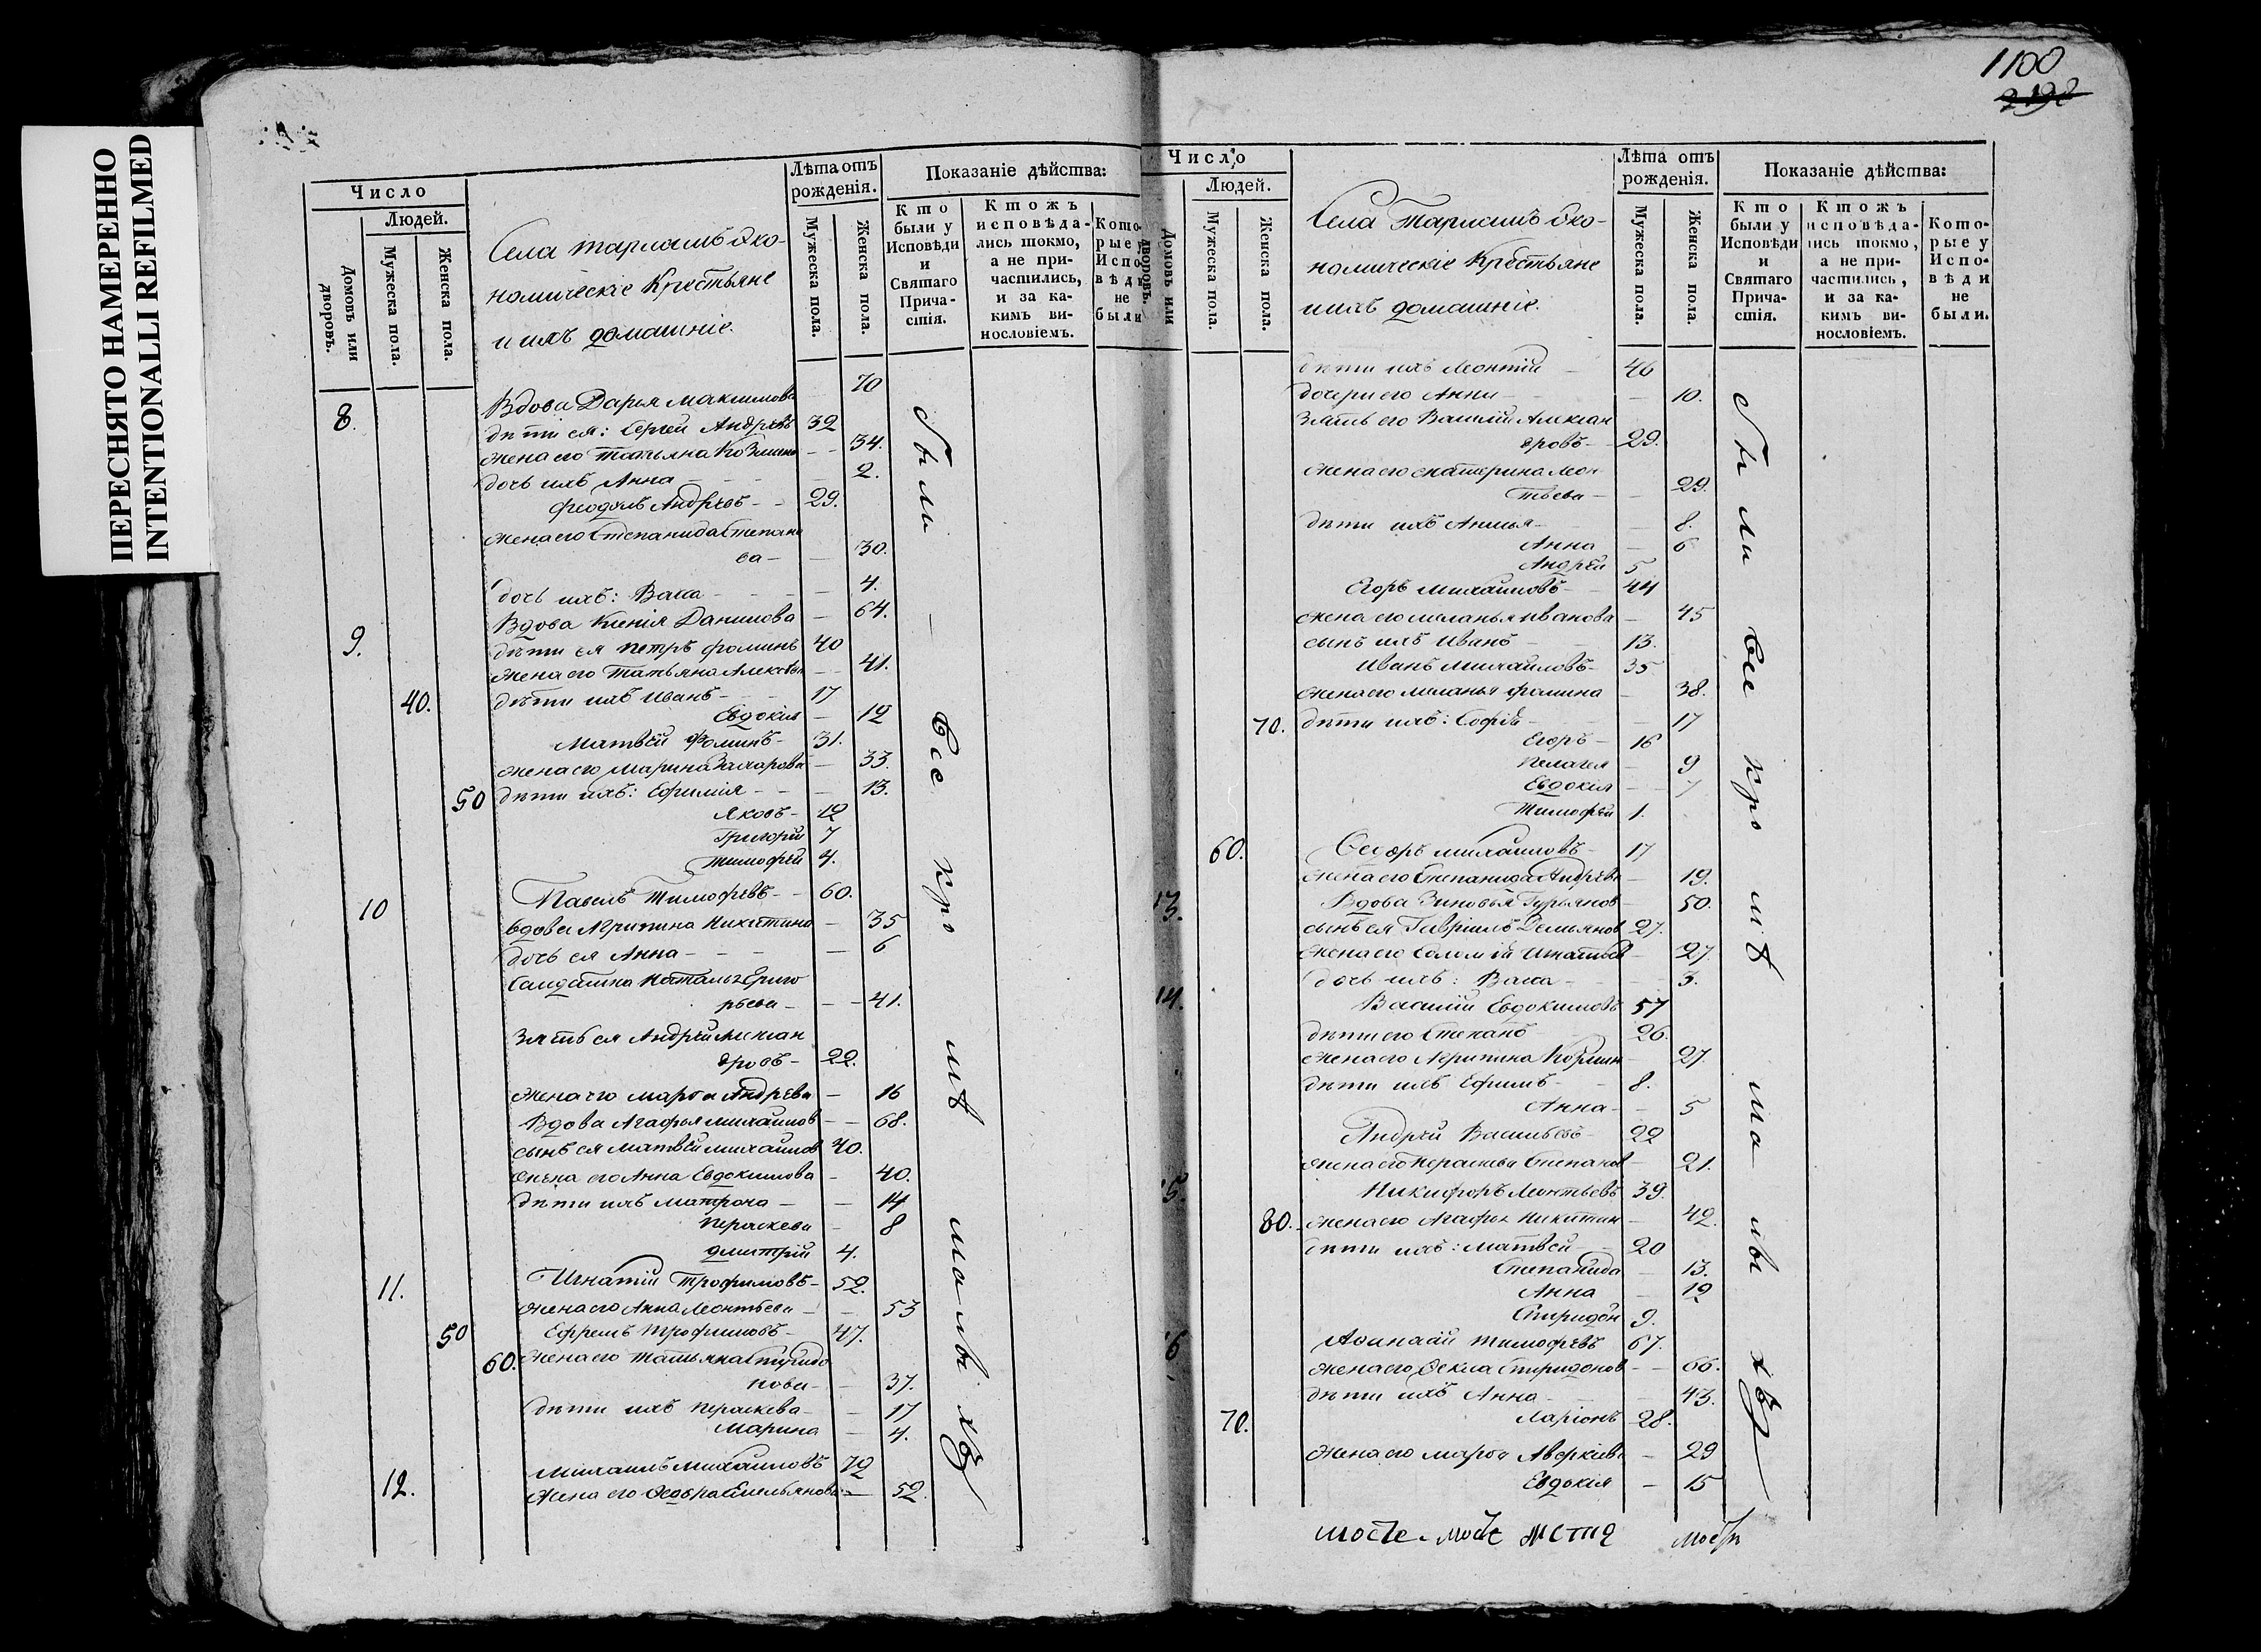 ПЕРЕСНЯТО НАМЕРЕННО
INTENTIONALLI REFILMED
1100
2198
Число
Людей.
Домовъ или дворовъ.
Мужеска пола.
Женска пола.
Села Тарлашъ Эко-
номическіе Крестьяне
и ихъ домашніе.
Лѣта отъ рожденія.
Мужеска пола.
Женска пола.
Показаніе дѣйства:
Кто были у Исповѣди и Святаго Прича-стія.
Ктожъ исповѣда-лись токмо, а не при-частились, и за ка-кимъ ви-нословіемъ.
Кото-рые у Испо-вѣди не были
8. Вдова Дарья Максимова 70
дѣти ея: Сергей Андрѣевъ 32
жена его Татьяна Козмина 34.
дочь ихъ Анна 2.
Феодоръ Андрѣевъ 29.
жена его Степанида Степано
ва 30.
дочь ихъ: Васса 4.
9. Вдова Ксенія Данилова 64.
дѣти ея Петръ Фоминъ 40
жена его Татьяна Алексѣева 41.
40. дѣти ихъ Иванъ 17
Евдокія 12
Матвѣй Фоминъ 31.
жена его Марина Захарова 33.
50 дѣти ихъ: Ефимія 13.
Яковъ 12
Григорій 7
Тимофей 4.
10 Павелъ Тимофѣевъ 60.
вдова Агрипина Никитина 35
дочь ея Анна 6
Салдатка Наталья Григо
рьева 41.
Зять ея Андрей Алексан
дровъ 22.
жена его Марѳа Андрѣева 16
Вдова Агафья Михайлов 68.
сынъ ея Матвѣй Михайлов 40.
жена его Анна Евдокимова 40.
дѣти ихъ Матрона 14
Пераскева 8
Дмитрій 4.
11. Игнатій Трофимовъ 52.
жена его Анна Леонтьева 53
50 Ефремъ Трофимовъ 47.
60. жена его Татьяна Спиридо
нова 37.
дѣти ихъ Пераскева 17
Марина 4.
12. Михаилъ Михайловъ 72
жена его Ѳедора Емельянова 52.
были все кромѣ малыхъ
Число
Людей.
Домовъ или дворовъ.
Мужеска пола.
Женска пола.
Села Тарлашъ Эко-
номическіе Крестьяне
и ихъ домашніе.
Лѣта отъ рожденія.
Мужеска пола.
Женска пола.
Показаніе дѣйства:
Кто были у Исповѣди и Святаго Прича-стія.
Ктожъ исповѣда-лись токмо, а не при-частились, и за ка-кимъ ви-нословіемъ.
Кото-рые у Испо-вѣди не были.
дѣти ихъ Леонтій 46
дочери его Анни 10.
Зять его Василій Алексан
дровъ 29.
жена его Екатерина Леон
тьева 29.
дѣти ихъ 8.
Анна 6
Андрей 5
Егоръ Михайловъ 44
жена его Меланья Иванова 45
сынъ ихъ Иванъ 13.
Иванъ Михайловъ 35
жена его Меланья Фомина 38.
70. дѣти ихъ: Софія 17
Егоръ 16
Пелагея 9
Евдокія 7
Тимофей 1.
60. Ѳедоръ Михайловъ 17
жена его Степанида Андрѣева 19.
13. Вдова Зиновья Гурьянов 50.
сынъ ея Гавріилъ Демьянов 27.
жена его Соломія Игнатьев 27.
дочь ихъ: Васса 3.
14. Василій Евдокимовъ 57
дѣти его Степанъ 26.
жена его Агрипина Козмин 27.
дѣти ихъ Ефимъ 8.
Анна 5
Андрей Васильевъ 22
жена его Пераскева Степанов 21.
15. Никифоръ Леонтьевъ 39.
80. жена его Агафья Никитин 42.
дѣти ихъ: Матвѣй 20
Степанида 13.
Анна 12
Спиридон 9.
16 Аѳанасій Тимофѣевъ 67.
жена его Ѳекла Спиридонов 66.
дѣти ихъ Анна 43.
70. Ларіонъ 28.
жена его Марѳа Аверкіева 29
Евдокія 15
были все кромѣ малыхъ